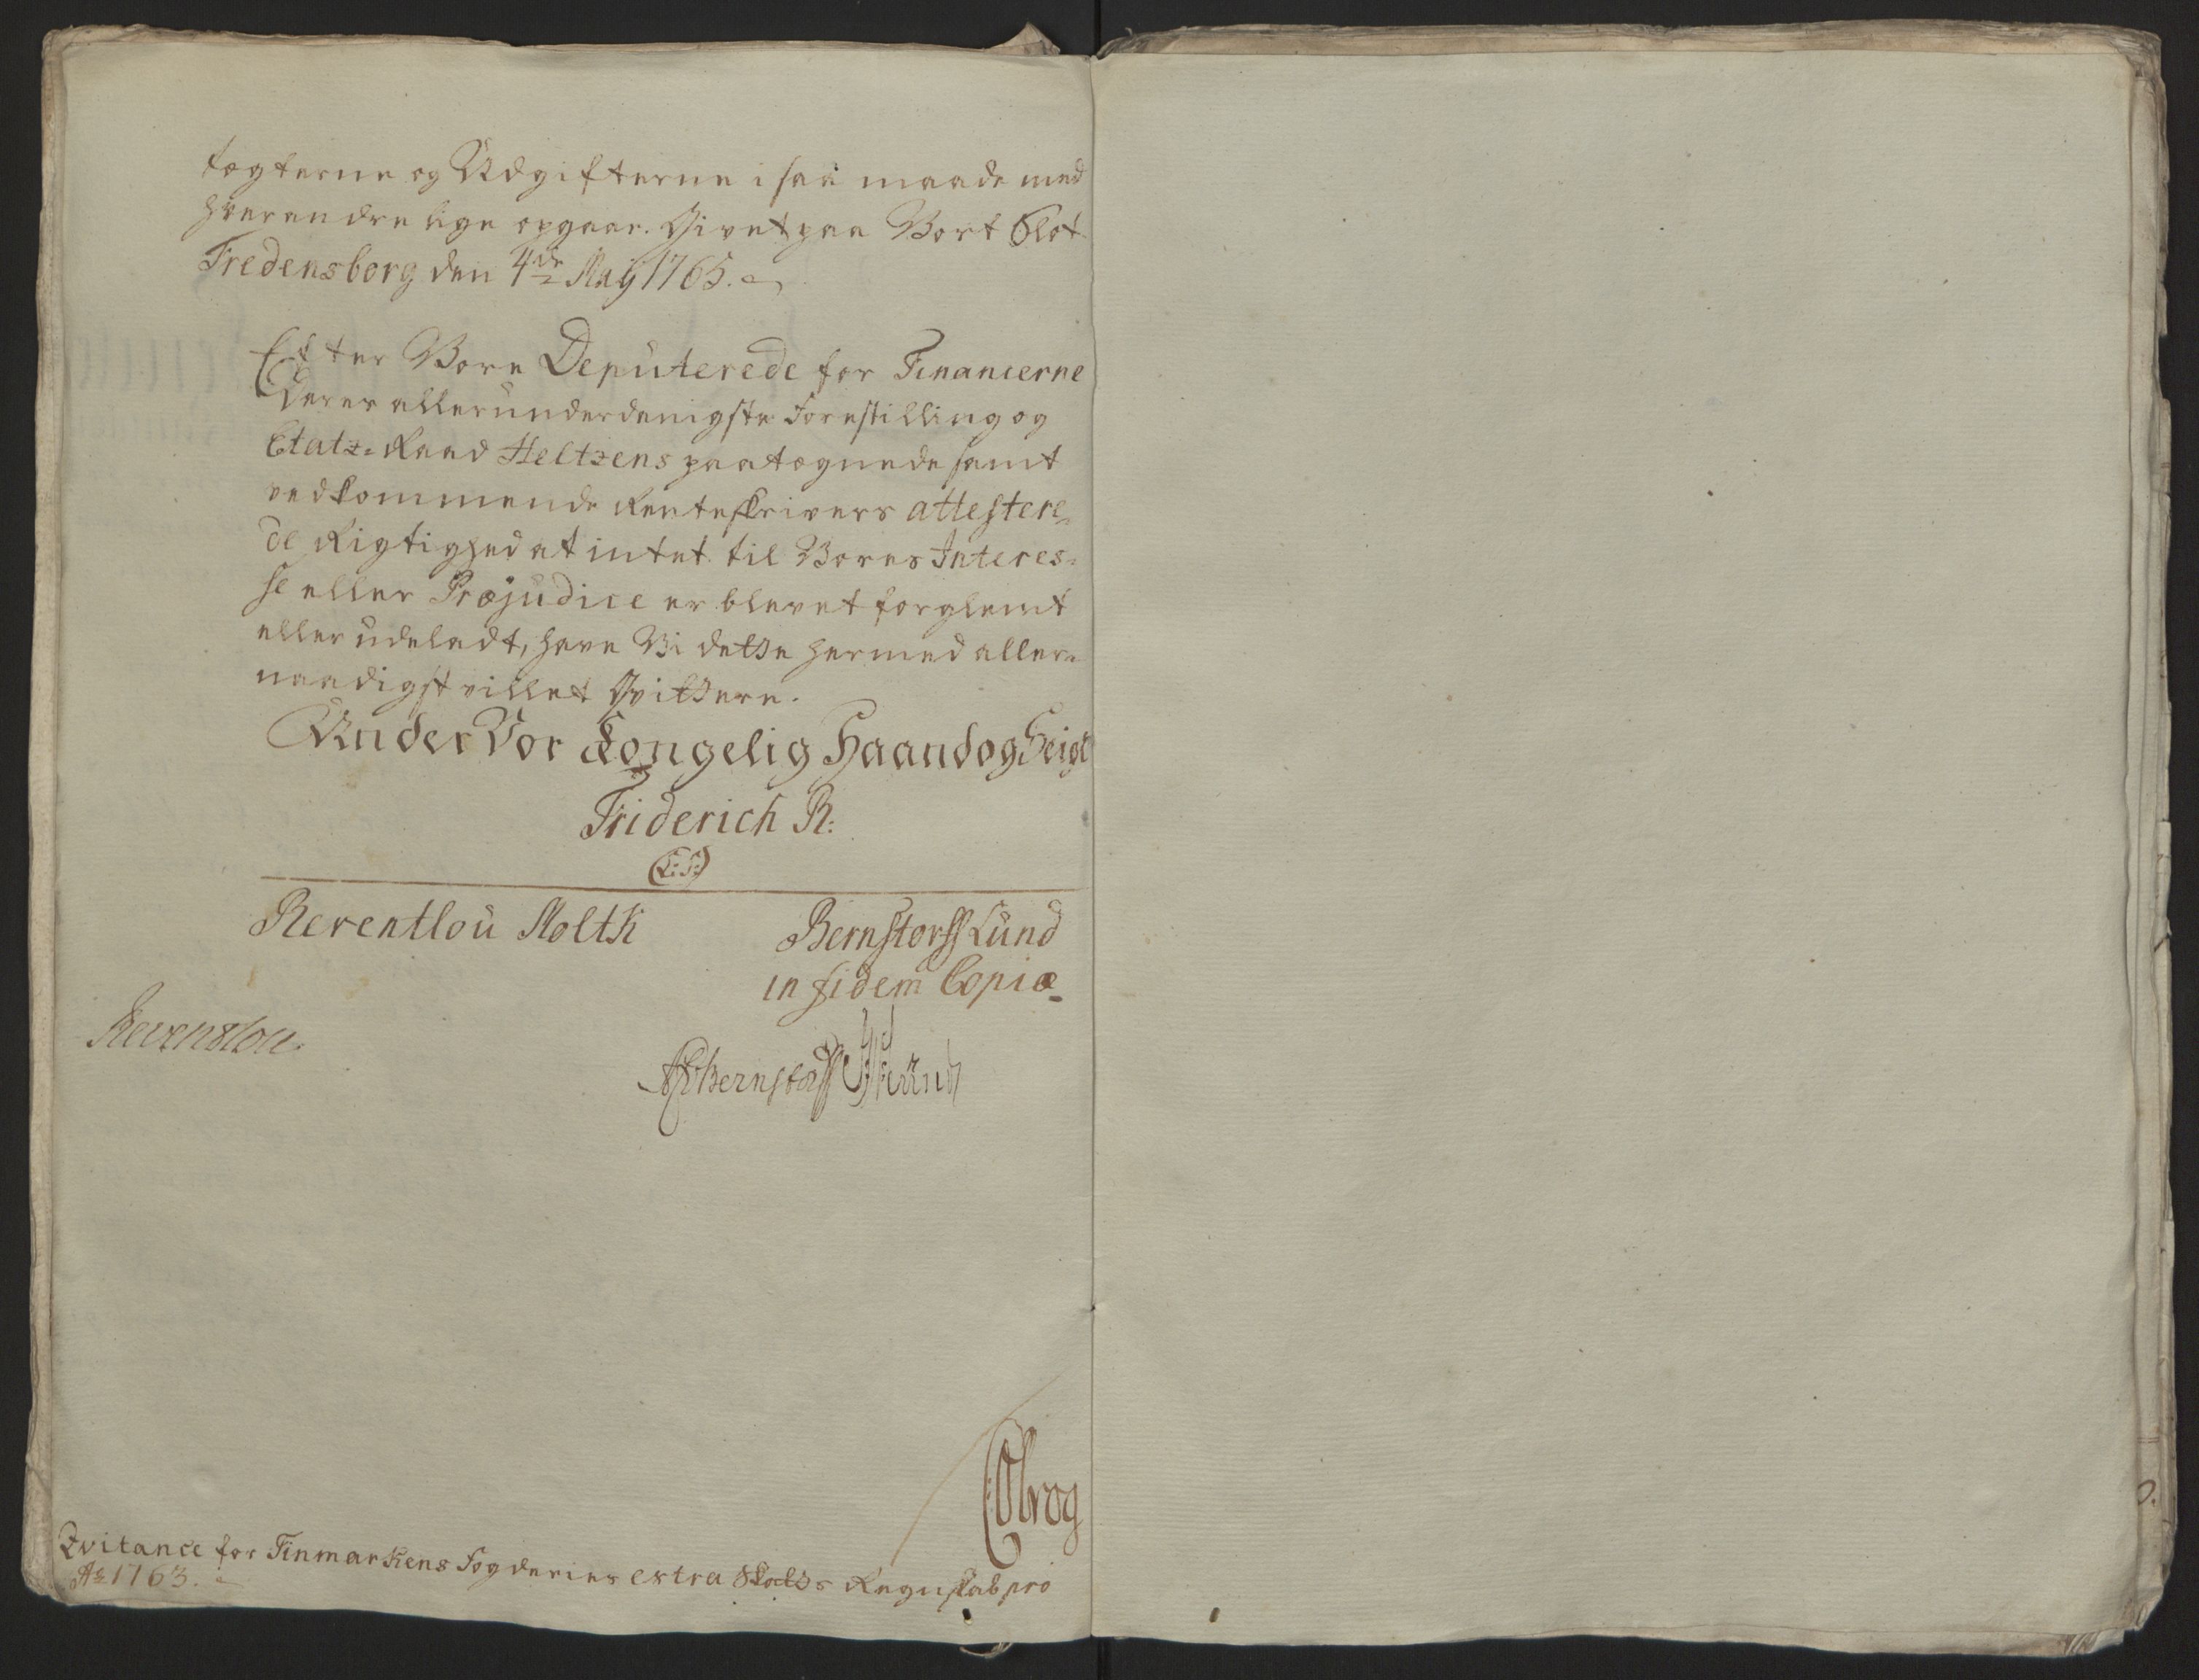 tægterne og Udgifterne i saa maade med
hverandre lige opgaar. Givet paa Vort Slot
Fredensborg den 4de Maÿ 1765.
Efter Vore Deputerede for Financerne
derer allerunderdanigste Forestilling og
Etatz-Raad Heltzens paategnede samt
vedkommende Renteskrivers attestere-
de Rigtighed at intet til Vores Interes-
se eller Præjudice er blevet forglemt
eller udeladt, have Vi dette hermed aller-
naadigst villet Qvittere.
Under Vor Kongelig Haand og Seigl
Friderich R:
(L:S:)
Reventlou Moltk
Bernstorff Lund
in fidem Copiæ
Reventlou
Bernstorff Lund
Qvitance for Finmarkens Fogderies extra Skatts Regnskab pro
Ao 1763.